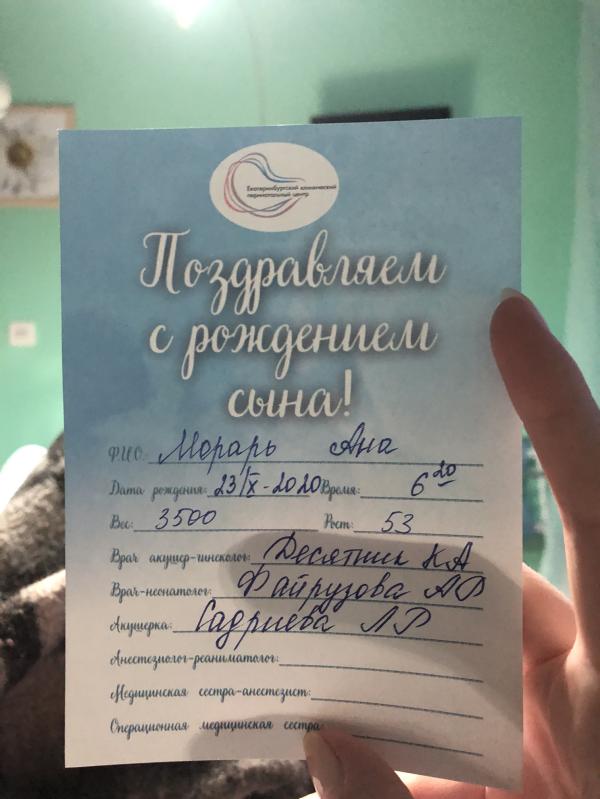 Екатеринбургский клинический
перинатальный центр
Поздравляем
с рождением
сына!
Ф.И.О.: Морарь Ана
Дата рождения: 23/X-2020 Время: 6 20
Вес: 3500 Рост: 53
Врач акушер-гинеколог: Десятник КА
Врач-неонатолог: Файрузова АФ
Акушерка: Садриева ЛР
Анестезиолог-реаниматолог:
Медицинская сестра-анестезист:
Операционная медицинская сестра: